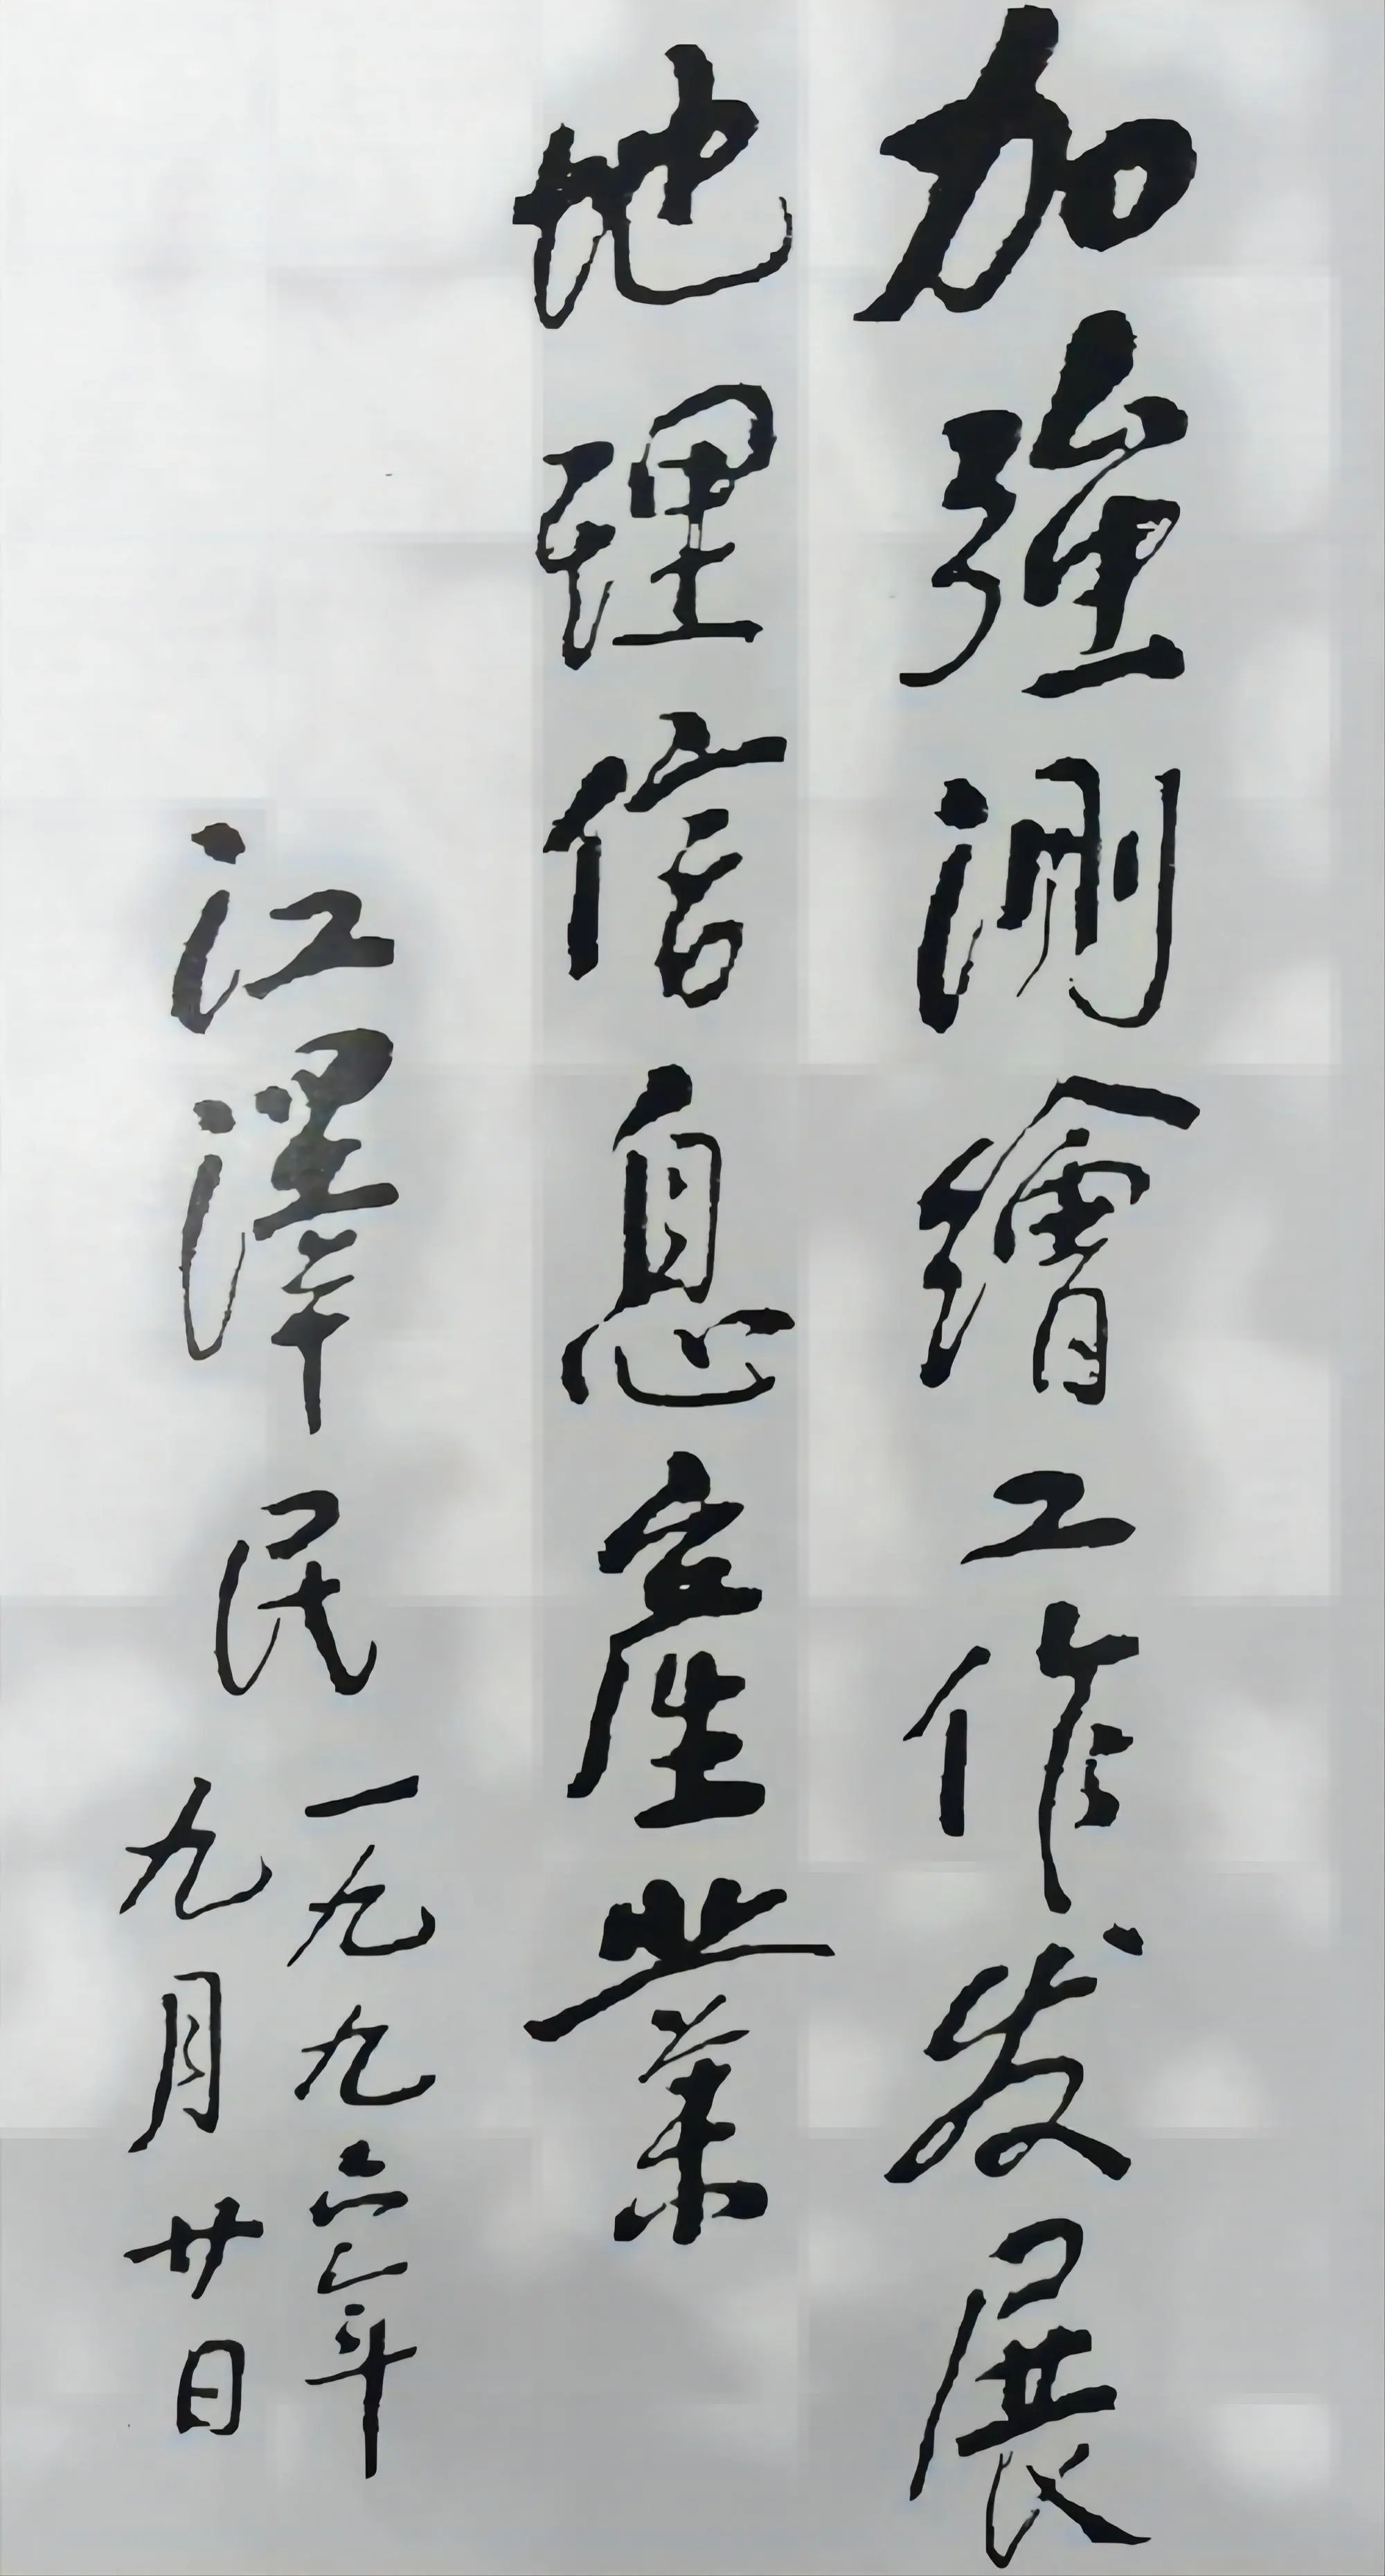 加強測繪工作发展
地理信息產業
江澤民
一九九六年
九月廿日